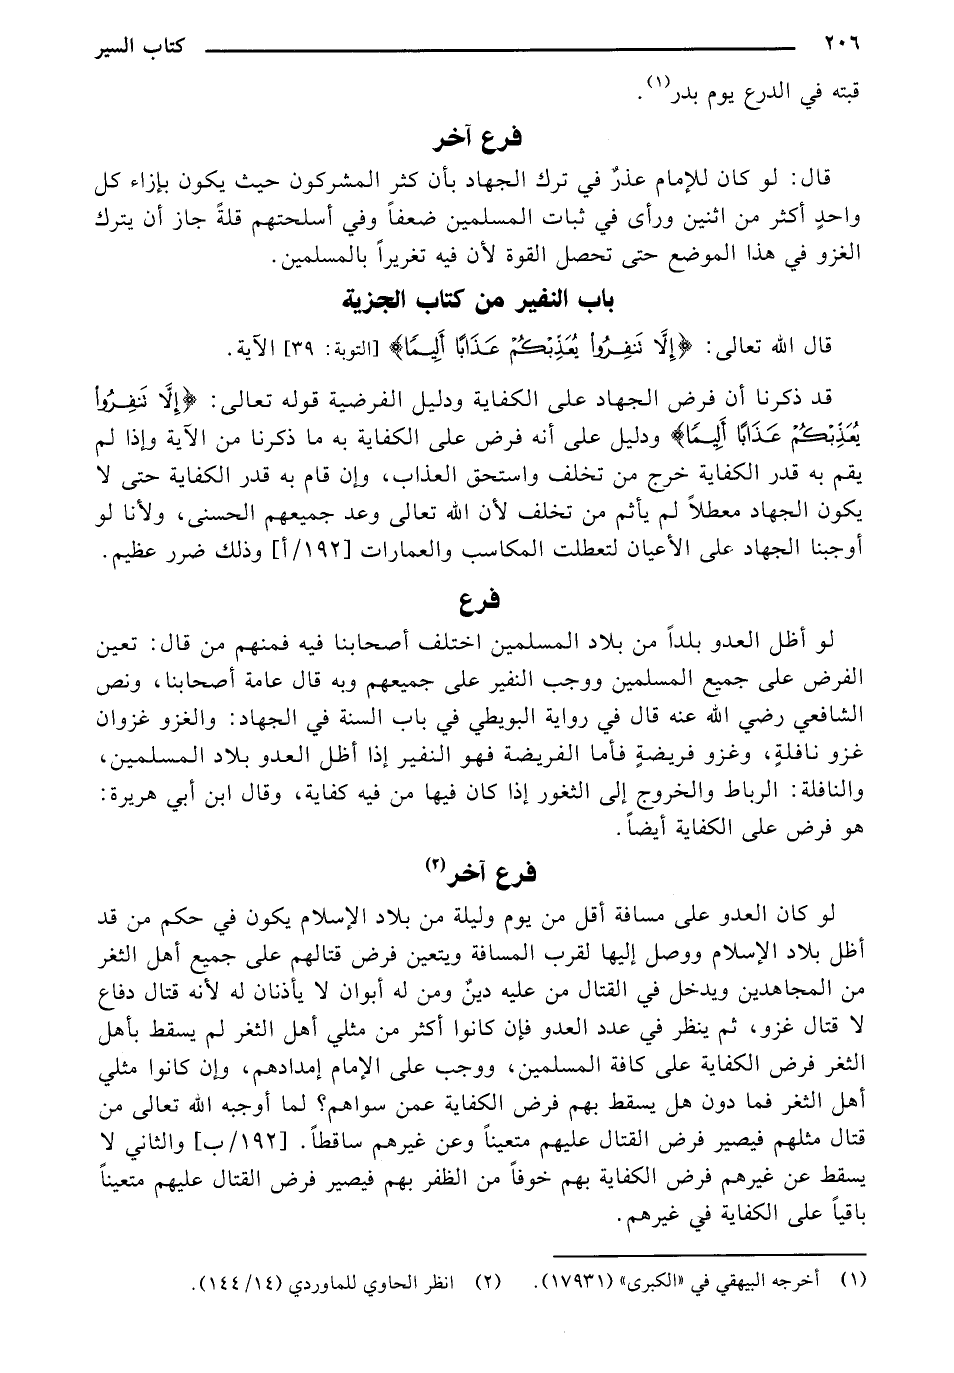 ٢٠٦ كتاب السير
قبته في الدرع يوم بدر(١).
فرع آخر
قال: لو كان للإمام عذرٌ في ترك الجهاد بأن كثر المشركون حيث يكون بإزاء كل
واحدٍ أكثر من اثنين ورأى في ثبات المسلمين ضعفاً وفي أسلحتهم قلةً جاز أن يترك
الغزو في هذا الموضع حتى تحصل القوة لأن فيه تغريراً بالمسلمين.
باب النفير من كتاب الجزية
قال الله تعالى: ﴿إِلَّا تَنفِرُوا۟ يُعَذِّبْكُمْ عَذَابًا أَلِيمًا﴾ [التوبة: ٣٩] الآية.
قد ذكرنا أن فرض الجهاد على الكفاية ودليل الفرضية قوله تعالى: ﴿إِلَّا تَنفِرُوا۟
يُعَذِّبْكُمْ عَذَابًا أَلِيمًا﴾ ودليل على أنه فرض على الكفاية به ما ذكرنا من الآية وإذا لم
يقم به قدر الكفاية خرج من تخلف واستحق العذاب، وإن قام به قدر الكفاية حتى لا
يكون الجهاد معطلاً لم يأثم من تخلف لأن الله تعالى وعد جميعهم الحسنى، ولأنا لو
أوجبنا الجهاد على الأعيان لتعطلت المكاسب والعمارات [١٩٢/أ] وذلك ضرر عظيم.
فرع
لو أظل العدو بلداً من بلاد المسلمين اختلف أصحابنا فيه فمنهم من قال: تعين
الفرض على جميع المسلمين ووجب النفير على جميعهم وبه قال عامة أصحابنا، ونص
الشافعي رضي الله عنه قال في رواية البويطي في باب السنة في الجهاد: والغزو غزوان
غزو نافلةٍ، وغزو فريضةٍ فأما الفريضة فهو النفير إذا أظل العدو بلاد المسلمين،
والنافلة: الرباط والخروج إلى الثغور إذا كان فيها من فيه كفاية، وقال ابن أبي هريرة:
هو فرض على الكفاية أيضاً.
فرع آخر(٢)
لو كان العدو على مسافة أقل من يوم وليلة من بلاد الإسلام يكون في حكم من قد
أظل بلاد الإسلام ووصل إليها لقرب المسافة ويتعين فرض قتالهم على جميع أهل الثغر
من المجاهدين ويدخل في القتال من عليه دينٌ ومن له أبوان لا يأذنان له لأنه قتال دفاع
لا قتال غزو، ثم ينظر في عدد العدو فإن كانوا أكثر من مثلي أهل الثغر لم يسقط بأهل
الثغر فرض الكفاية على كافة المسلمين، ووجب على الإمام إمدادهم، وإن كانوا مثلي
أهل الثغر فما دون هل يسقط بهم فرض الكفاية عمن سواهم؟ لما أوجبه الله تعالى من
قتال مثلهم فيصير فرض القتال عليهم متعيناً وعن غيرهم ساقطاً. [١٩٢/ب] والثاني لا
يسقط عن غيرهم فرض الكفاية بهم خوفاً من الظفر بهم فيصير فرض القتال عليهم متعيناً
باقياً على الكفاية في غيرهم.
(١) أخرجه البيهقي في «الكبرى» (١٧٩٣١). (٢) انظر الحاوي للماوردي (١٤/١٤٤).